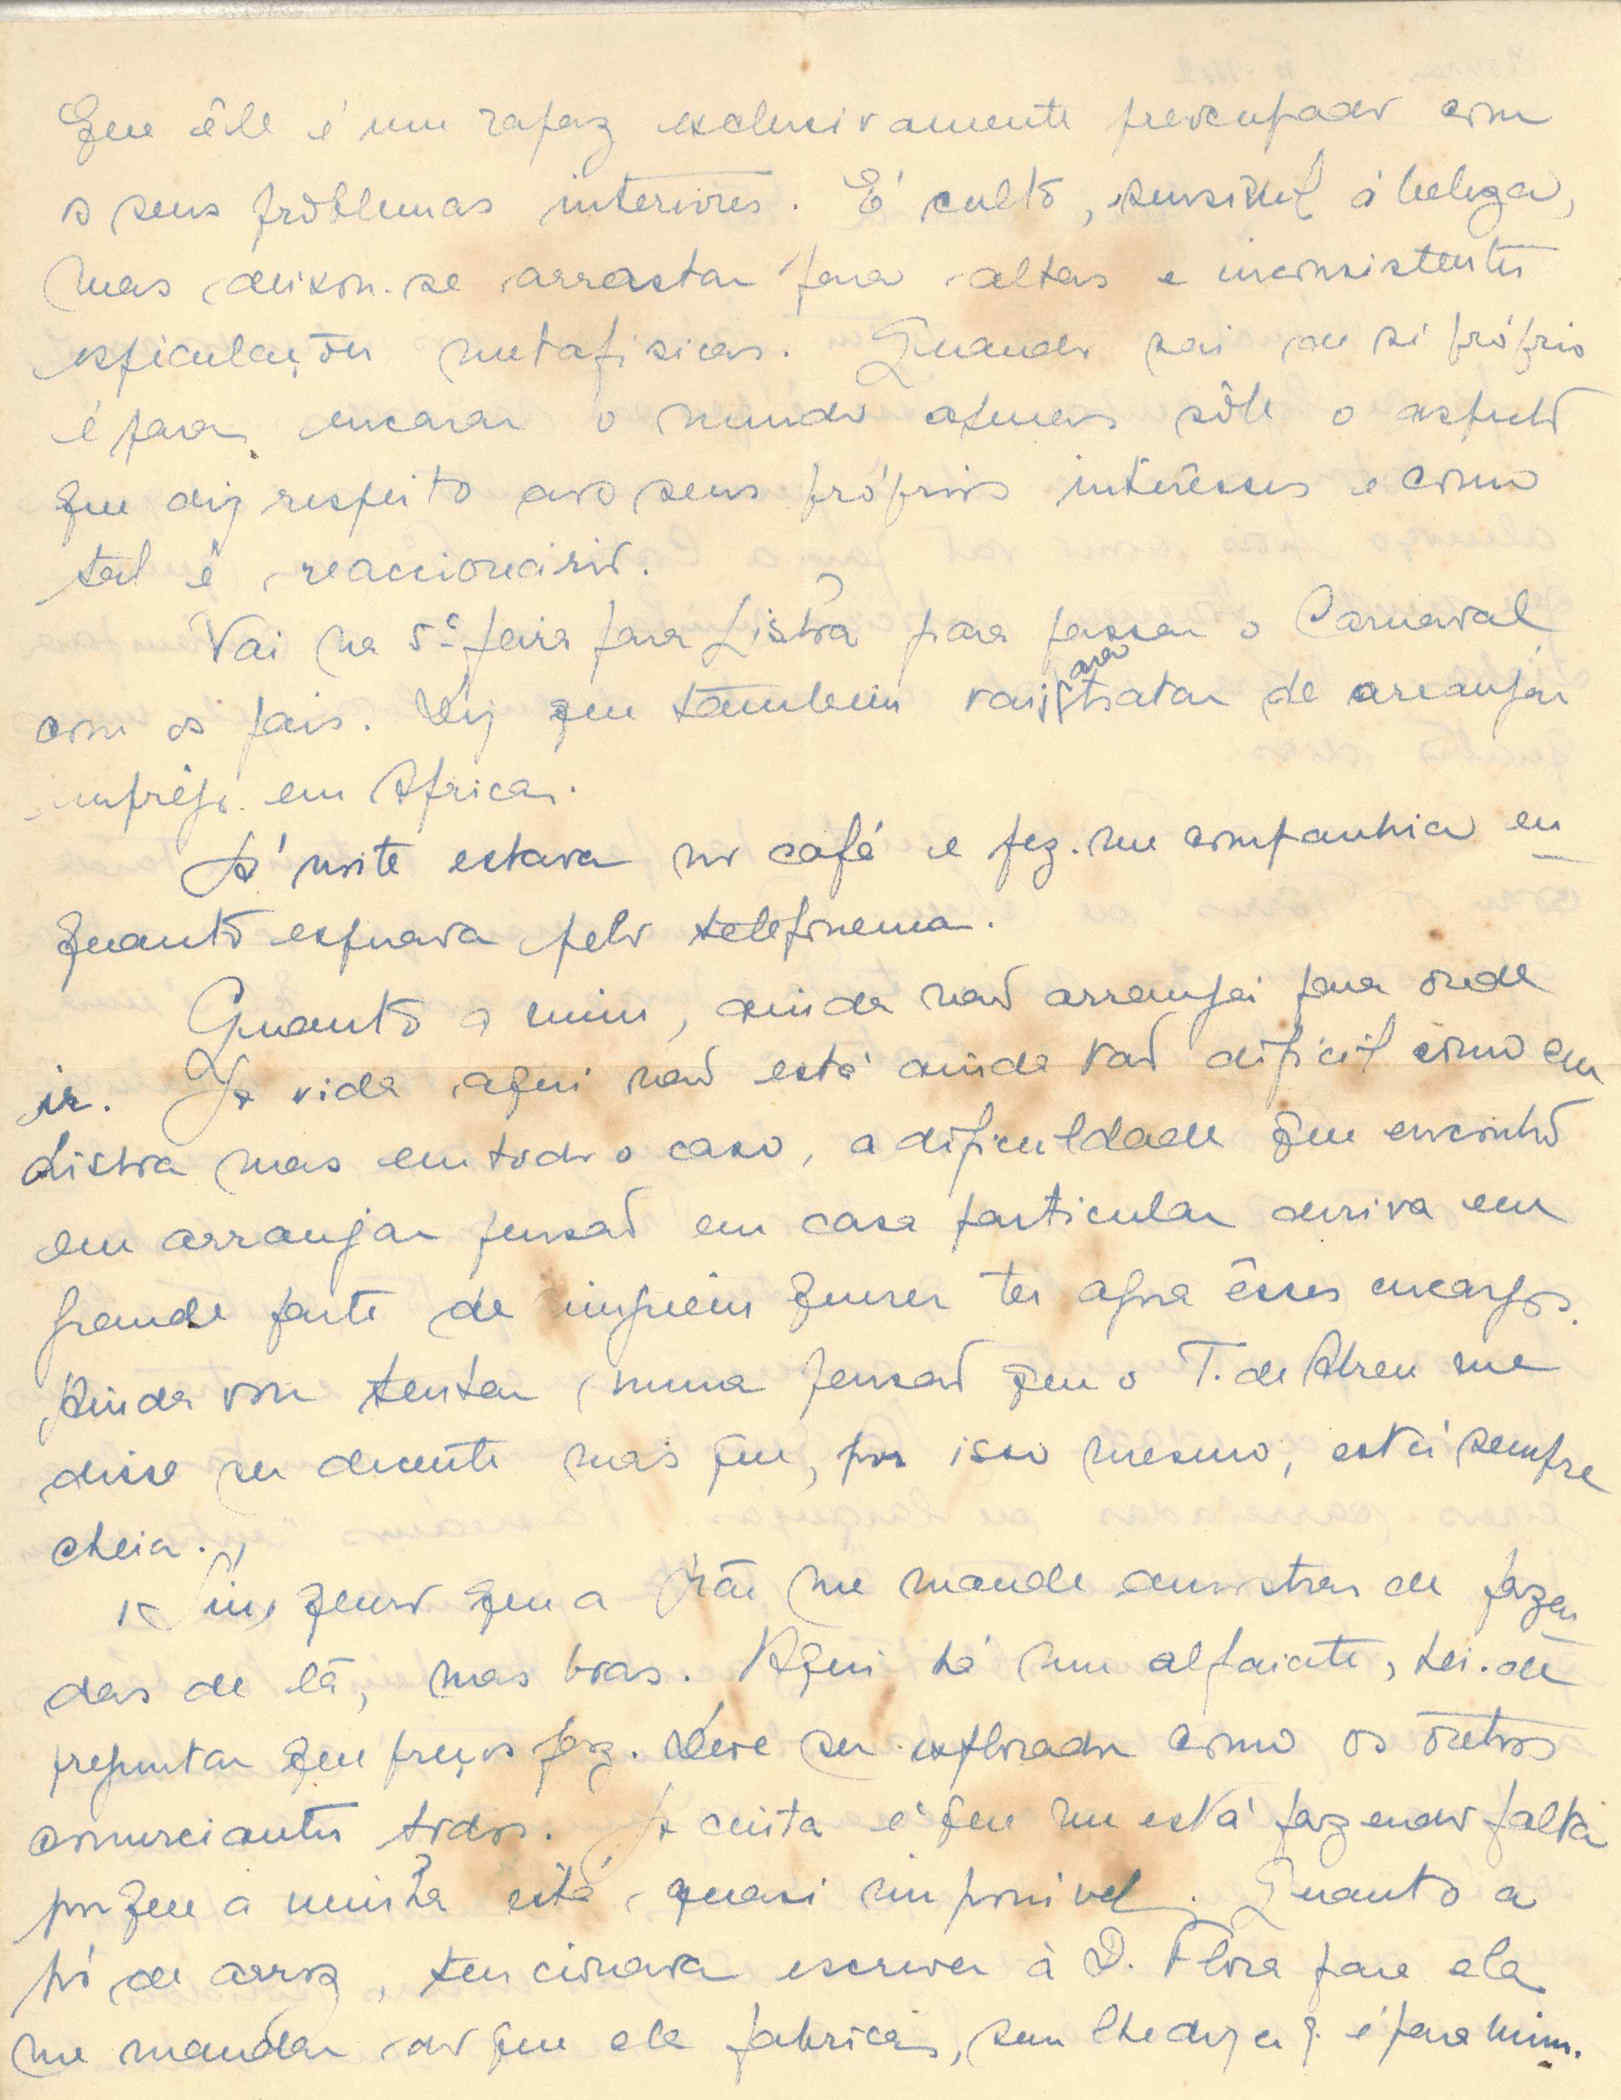 que êle é um rapaz exclusivamente preocupado com
os seus problemas interiores. É culto, sensível á beleza,
mas deixou-se arrastar para altas e inconsistentes
espiculações metafisicas. Quando sai de si próprio
é para encarar o mundo apenas sôbe o aspecto
que diz respeito aos seus próprios interêsses e como
tal é reaccionário.
Vai na 5ª feira para Lisboa para passar o Carnaval
com os pais. Diz que tambem vai para tratar de arranjar
emprêgo em Africa.
Á noite estava no café e fez-me companhia en
quanto esperava pelo telefonema.
Quanto a mim, ainda não arranjei para onde
ir. A vida aqui não está ainda tão difícil como em
Lisboa mas em todo o caso, a dificuldade que encontro
em arranjar pensão em casa particular deriva em
grande parte de ninguém querer ter agora êsses encargos.
Ainda vou tentar numa pensão que o T. de Abreu me
disse ser decente mas que, por isso mesmo, está sempre
cheia.
Sim, quero que a Mãe me mande amostras de fazen
das de lã, mas boas. Aqui há um alfaiate, hei-de
preguntar que preços faz. Deve ser explorador como os outros
comerciantes todos. A cinta é que me está fazendo falta
porque a minha está quasi imponivel. Quanto a
pó de arroz, tencionava escrever à D. Flora para ela
me mandar do que ela fabrica, sem lhe dizer q. é para mim.